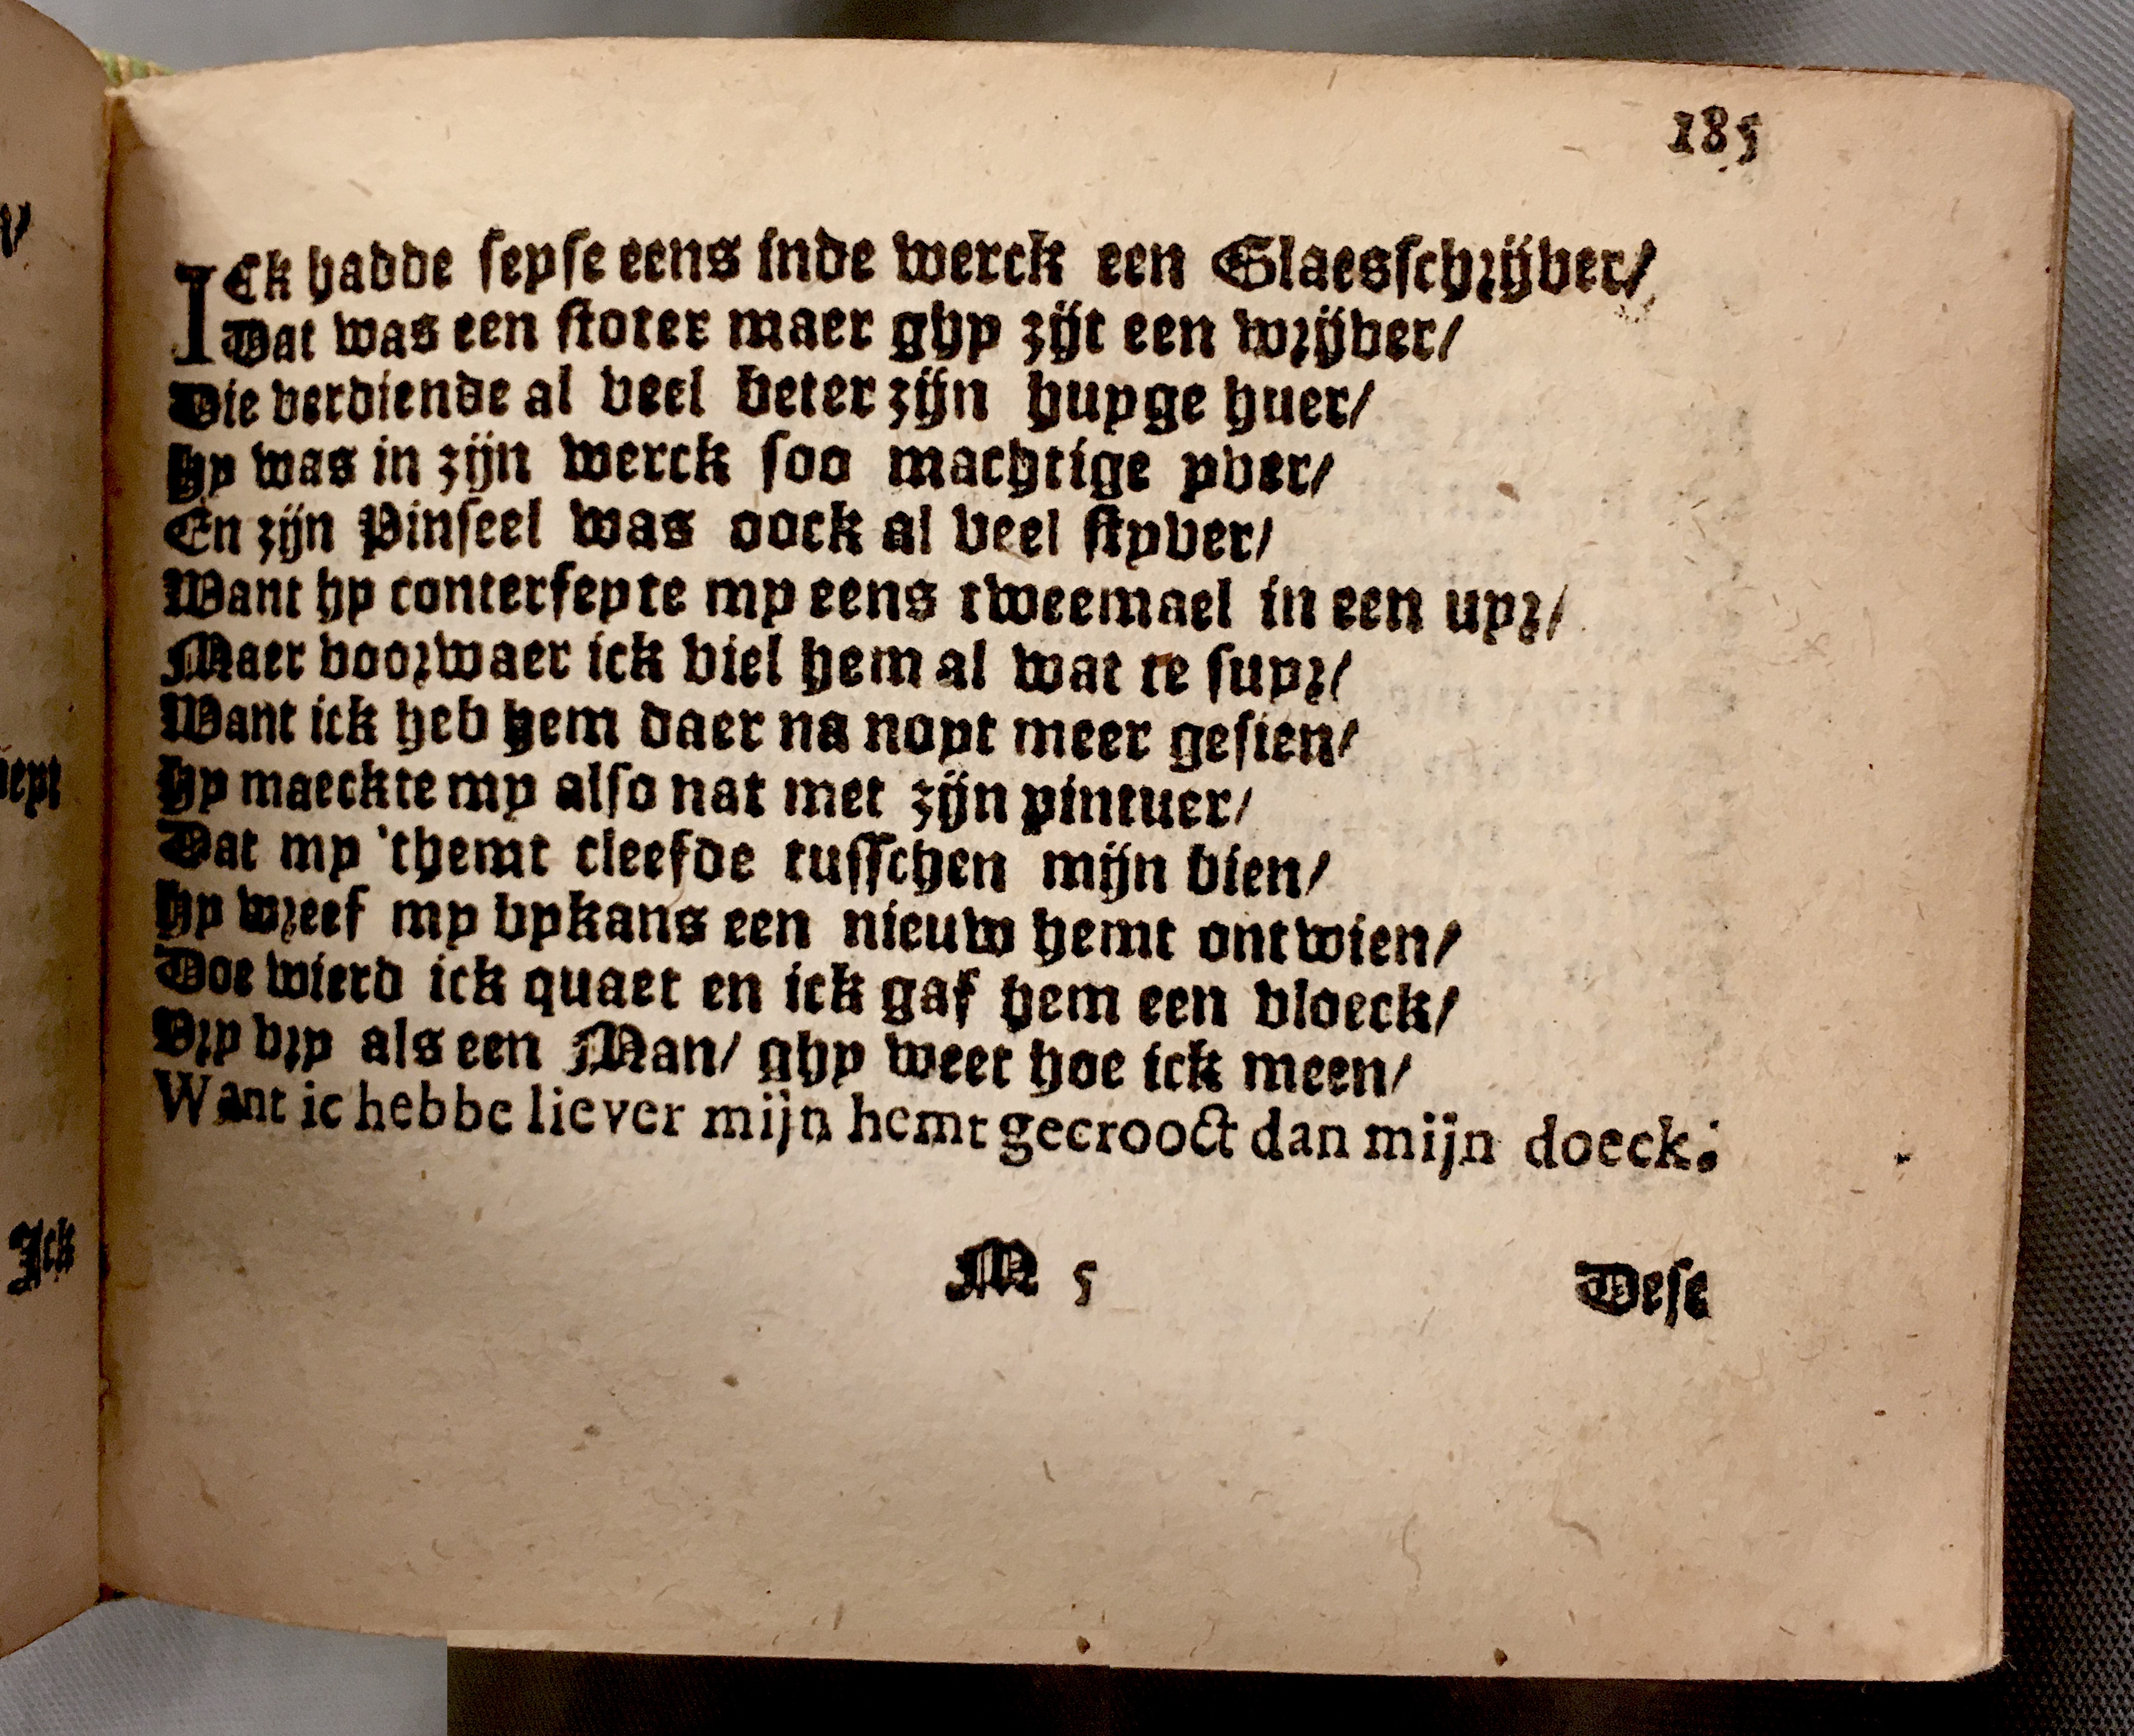 185
ICk hadde seyse eens inde werck een Glaesschrijver/
Dat was een stoter maer ghy zijt een wrijver/
Die verdiende al veel beter zijn huyge huer/
Hy was in zijn werck soo machtige yver/
En zijn Pinseel was oock al veel styver/
Want hy conterfeyte my eens tweemael in een uyr/
Maer voorwaer ick viel hem al wat te suyr/
Want ick heb hem daer na noyt meer gesien/
Hy maeckte my also nat met zijn pintuer/
Dat my 'themt cleefde tusschen mijn dien/
Hy wreef my bykans een nieuw hemt ontwien/
Doe wierd ick quaet en ick gaf hem een vloeck/
Vry vry als een Man/ ghy weet hoe ick meen/
Want ic hebbe liever mijn hemt gecrooct dan mijn doeck.
M 5
Dese
Ick